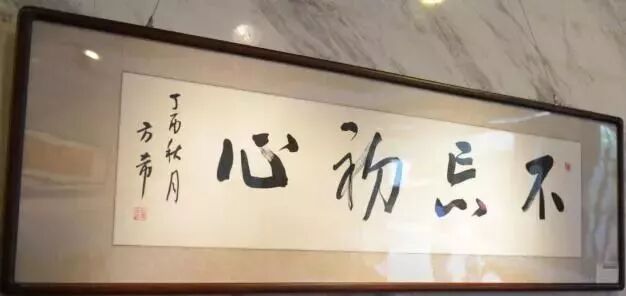 不忘初心
丁酉秋月
方希